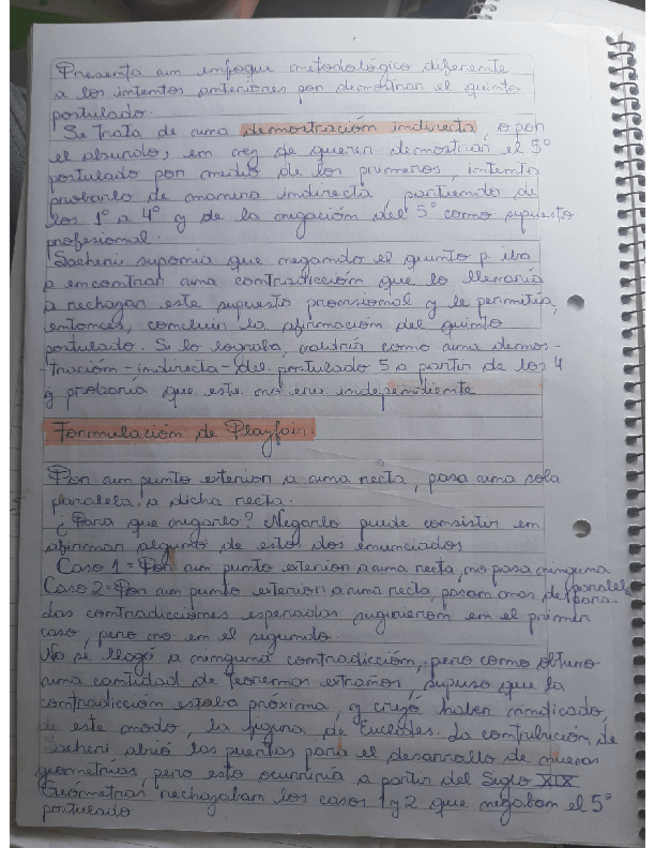 Presenta um enfoque metodológico diferente
a los intentos anteriores por demostrar el quinto
postulado.
Se trata de uma demostración indirecta, o por
el absurdo, em vez de querer demostrar el 5°
postulado por medio de los primeros, intento
probarlo de manera indirecta, partiendo de
los 1° a 4° y de la negación del 5° como supuesto
profesional.
Sacheri suponia que negando el quinto p. iba
a encontrar uma contradicción que lo llevaria
a rechazar este supuesto provisional y le permitiria,
entonces, concluir la afirmación del quinto
postulado. Si lo lograba, valdria como uma demos-
tración-indirecta-del postulado 5 a partir de los 4
y probaria que este no era independiente
Formulación de Playfair:
Por um punto exterior a uma recta, pasa uma sola
paralela a dicha recta.
¿Para que negarlo? Negarlo puede consistir em
afirmar alguno de estos dos enunciados
Caso 1 = Por um punto exterior a uma recta, no pasa ninguna
Caso 2 = Por um punto exterior a uma recta, pasam mas de 1 paralela
Las contradicciones esperadas sugirierom em el primer
caso, pero no em el segundo.
No se llegó a ninguna contradicción, pero como obtuvo
uma cantidad de teoremas extraños, supuso que la
contradicción estaba próxima, y creyó haber reindicado,
de este modo, la figura de Euclides. La contribución de
Sacheri abrió las puertas para el desarrollo de nuevas
geometrias, pero esto ocurriria a partir del Siglo XIX
Geómetras rechazaban los casos 1 y 2 que negaban el 5°
postulado